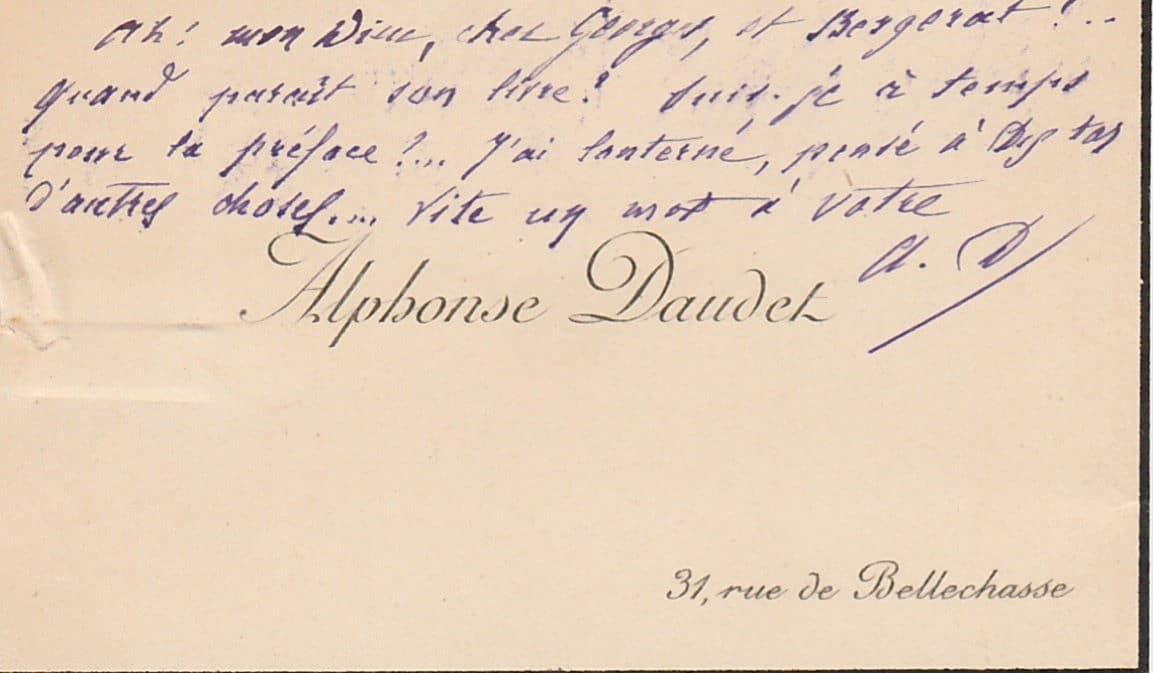 Ah! mon Dieu, cher Georges, et Bergerat!..
quand paraît son livre? Suis-je à temps
pour la préface?... J'ai lanterné, pensé à Des tas
d'autres choses.... Vite un mot à votre
A. D
Alphonse Daudet
31, rue de Bellechasse